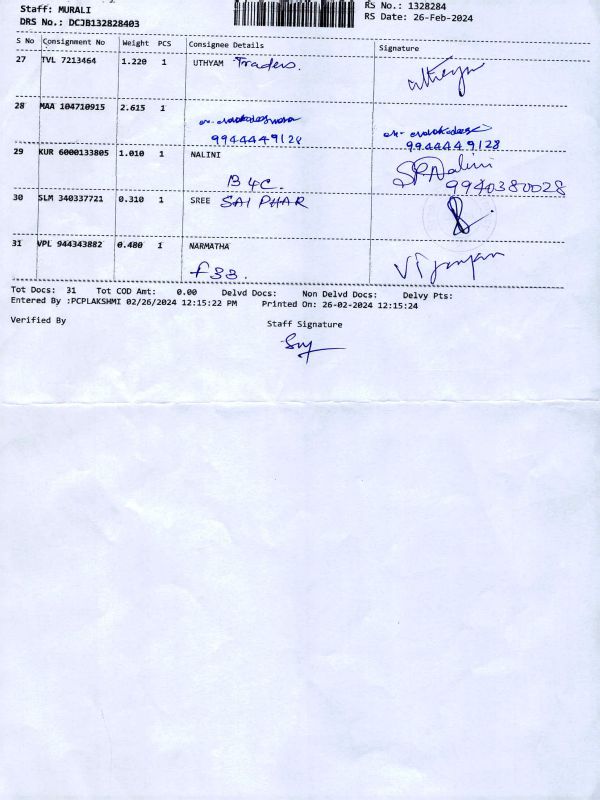 Staff: MURALI
RS No.: 1328284
DRS No.: DCJB132828403
RS Date: 26-Feb-2024
S No Consignment No Weight PCS Consignee Details Signature
27 TVL 7213464 1.220 1 UTHYAM Traders.
28 MAA 104710915 2.615 1
9944449128 9944449128
29 KUR 6000133805 1.010 1 NALINI SP Nalini
B4C. 9940380028
30 SLM 340337721 0.310 1 SREE SAI PHAR
31 VPL 944343882 0.480 1 NARMATHA Vijayan
F33.
Tot Docs: 31 Tot COD Amt: 0.00 Delvd Docs: Non Delvd Docs: Delvy Pts:
Entered By :PCPLAKSHMI 02/26/2024 12:15:22 PM Printed On: 26-02-2024 12:15:24
Verified By
Staff Signature